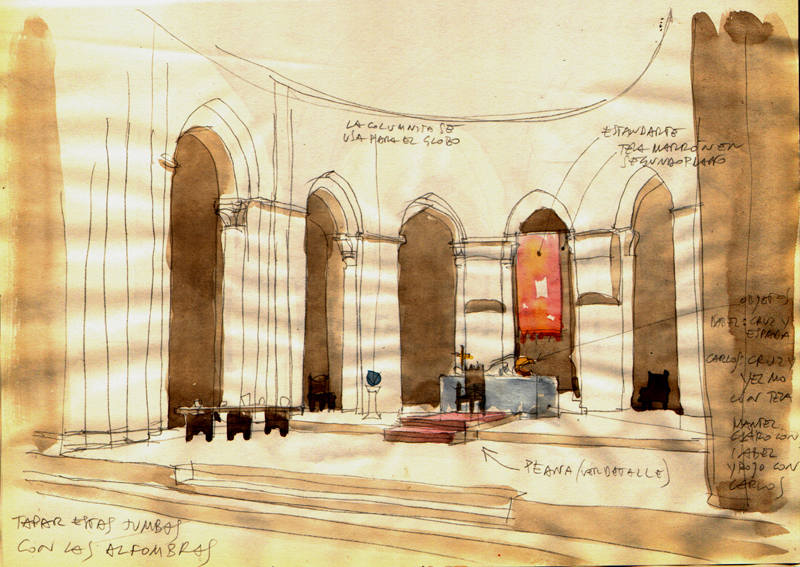 LA COLUMNITA SE
USA PARA EL GLOBO
ESTANDARTE
TELA MARRÓN EN
SEGUNDO PLANO
OBJETOS
ISABEL: CRUZ Y
ESPADA
CARLOS: CRUZ Y
YELMO
CON TELA
MANTEL
CLARO CON
ISABEL
Y ROJO CON
CARLOS
PEANA (VER DETALLE)
TAPAR ESTAS TUMBAS
CON LAS ALFOMBRAS